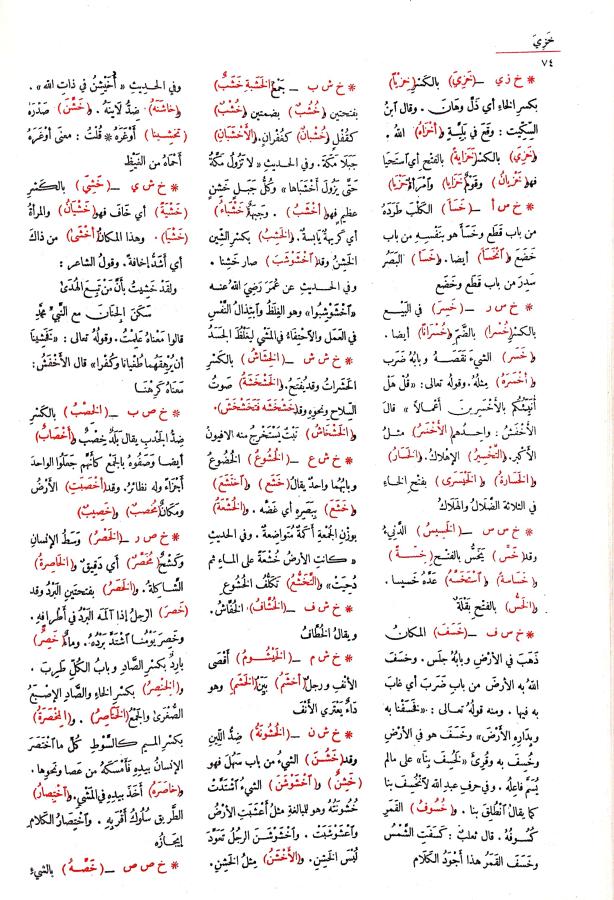 خَزِيَ
٧٤
* خ ز ي – (خَزِيَ) بالكَسْرِ (خِزْيًا)
بكسر الخاءِ أي ذَلَّ وهَانَ . وقال ابنُ
السِّكِّيتِ : وقعَ في بَلِيَّةٍ و(أَخْزَاهُ) اللهُ .
و(خَزِيَ) بالكسْرِ (خَزَايةً) بالفتح أي استَحْيَا
فهو (خَزْيانُ) وقومٌ (خَزايَا) وامرأةٌ (خَزْيَا)
* خ س أ – (خَسَأَ) الكَلْبَ طَرَدَهُ
من باب قَطَعَ وخَسَأَ هو بنَفْسِهِ من باب
خَضَعَ و(انْخَسَأَ) أيضا . و(خَسَأَ) البَصَرُ
سَدِرَ من باب قَطَعَ وخَضَعَ
* خ س ر – (خَسِرَ) في البَيْعِ
بالكسْرِ (خُسْرا) بالضَّمِّ و(خُسْرَانًا) أيضا .
و(خَسَرَ) الشيءَ نَقَصَهُ وبابُهُ ضَرَبَ
و(أخْسَرَهُ) مِثْلُهُ . وقولُه تعالى : «قُلْ هَلْ
أُنَبِّئُكُم بالأَخْسَرِينَ أعْمالًا» قالَ
الأَخْفَشُ : واحدُهم (الأَخْسَرُ) مثلُ
الأَكْبرِ . و(التَّخْسِيرُ) الإهْلاكُ . و(الخَسَارُ)
و(الخَسَارةُ) و(الخَيْسَرَى) بفتح الخاءِ
في الثلاثةِ الضَّلالُ والهلاكُ
* خ س س – (الخَسِيسُ) الدَّنِيءُ
وقد (خَسَّ) يَخَسُّ بالفتح (خِسَّةً)
و(خَسَاسةً) و(اسْتَخَسَّهُ) عَدَّهُ خَسيسا .
و(الخَسُّ) بالفتح بَقْلَةٌ
* خ س ف – (خَسَفَ) المكانُ
ذَهَبَ في الأَرْضِ وبابُه جَلَس . وخَسَفَ
اللهُ به الأرضَ من باب ضَرَبَ أي غابَ
به فيها . ومنه قولُه تعالى : «فَخَسَفْنا به
وبِدَارِهِ الأَرْضَ» وخَسَفَ هو في الأرْضِ
وخُسِفَ به وقُرِئَ «لَخُسِفَ بِنَا» على مالم
يُسَمَّ فاعِلُهُ . وفي حرفِ عبدِ الله لَانْخُسِفَ بنا
كما يقالُ انْطُلِقَ بنا . و(خُسُوفُ) القَمَرِ
كُسُوفُهُ . قال ثعلبٌ : كَسَفَتِ الشَّمْسُ
وخَسَفَ القَمَرُ هذا أَجْوَدُ الكَلام
* خ ش ب – جَمْعُ (الخَشَبةِ خَشَبٌ)
بفتحتين و(خُشُبٌ) بضمتين و(خُشْبٌ)
كقُفْلٍ و(خُشْبَانٌ) كغُفْران . و(الأَخْشَبَانِ)
جبلَا مكّةَ . وفي الحديثِ «لا تَزُولُ مَكّةُ
حَتَّى يَزُولَ أَخْشَبَاها» وكُلُّ جَبَلٍ خَشِنٍ
عظيمٍ فهو (أَخْشَبُ) . وجَبْهَةٌ (خَشْبَاءُ)
أي كَرِيهَةٌ يَابِسةٌ . و(الخَشِبُ) بكسر الشِّينِ
الخَشِنُ وقد (اخْشَوْشَبَ) صارَ خَشِنا .
وفي الحديث عن عُمَرَ رَضِيَ اللهُ عنه
«اخْشَوْشِبُوا» وهو الغِلَظُ وابتِذَالُ النَّفْسِ
في العَمَلِ والاحْتِفاءُ في المَشْيِ لِيَغْلُظَ الجَسَدُ
* خ ش ش – (الخِشَاشُ) بالكَسْرِ
الحَشَراتُ وقد يُفتَحُ . و(الخَشْخَشَةُ) صَوتُ
السِّلاحِ ونحوِهِ وقد (خَشْخَشَهُ فَتَخَشْخَشَ) .
و(الخَشْخَاشُ) نَبْتٌ يُسْتَخْرَجُ منه الافيون
* خ ش ع – (الخُشُوعُ) الخُضُوعُ
وبابُهما واحدٌ يقالُ (خَشَعَ) و(اخْتَشَعَ)
و(خَشَعَ) بِبَصَرِهِ أي غَضَّه . و(الخُشْعَةُ)
بوزنِ الجُمْعةِ أَكَمةٌ مُتواضِعةٌ . وفي الحديثِ
«كانَتِ الأرضُ خُشْعَةً على الماءِ ثم
دُحِيَتْ» و(التَّخَشُّعُ) تَكَلُّفُ الخُشُوعِ
* خ ش ف – (الخُشَّافُ) الخُفَّاشُ .
ويقالُ الخُطَّافُ
* خ ش م – (الخَيْشُومُ) أَقْصَى
الأنْفِ ورجلٌ (أخْشَمُ) بَيِّنُ (الخَشَمِ) وهو
داءٌ يَعْتَرِي الأنْفَ
* خ ش ن – (الخُشُونَةُ) ضِدُّ اللِّينِ
وقد (خَشُنَ) الشيءُ من باب سَهُلَ فهو
(خَشِنٌ) و(اخْشَوْشَنَ) الشيءُ اشْتَدَّتْ
خُشُونَتُهُ وهو للمُبالغةِ مثلُ أعْشَبَتِ الأرضُ
واعْشَوْشَبَتْ . واخْشَوْشَنَ الرجُلُ تَعَوَّدَ
لُبْسَ الخَشِنِ . و(الأَخْشَنُ) مِثلُ الخَشِنِ .
وفي الحديثِ «أُخَيْشِنُ في ذاتِ الله» .
و(خاشَنَهُ) ضِدُّ لَايَنَهُ . و(خَشَّنَ) صَدْرَهُ
(تخشِينا) أَوْغَرَهُ * قُلْتُ : معنى أَوْغَرَهُ
أَحْمَاهُ من الغَيْظِ
* خ ش ي – (خَشِيَ) بالكَسْرِ
(خَشْيَةً) أي خَافَ فهو (خَشْيَانُ) والمرأةُ
(خَشْيَا) . وهذا المكانُ (أخْشَى) من ذاكَ
أي أَشَدُّ إخَافةً . وقولُ الشاعرِ :
ولقَدْ خَشِيتُ بأَنَّ مَنْ تَبِعَ الهُدَى
سَكَنَ الجِنَانَ مع النَّبِيِّ محمَّدِ
قالوا مَعْناهُ عَلِمْتُ . وقولُهُ تعالى : «فَخَشِينا
أن يُرْهِقَهُما طُغْيانا وكُفْرا» قال الأَخْفَشُ :
مَعناهُ كَرِهْنا
* خ ص ب – (الخِصْبُ) بالكَسْرِ
ضِدُّ الجَدْبِ يقالُ بَلَدٌ خِصْبٌ و(أخْصَابٌ)
أيضا وصَفُوهُ بالجَمْعِ كأنَّهم جَعَلوا الواحدَ
أجْزاءً وله نظائرُ . وقد (أخْصَبَتِ) الأرْضُ
ومكانٌ (مُخْصِبٌ) و(خَصِيبٌ)
* خ ص ر – (الخَصْرُ) وَسَطُ الإنسانِ
وكَشْحٌ (مُخَصَّرٌ) أي دَقِيقٌ و(الخَاصِرةُ)
الشَّاكلةُ . و(الخَصَرُ) بفتحتين البَرْدُ وقد
(خَصِرَ) الرجلُ إذا آلَمَهُ البَرْدُ في أطْرافِهِ .
وخَصِرَ يَومُنا اشْتَدَّ بَرْدُهُ . وماءٌ (خَصِرٌ)
باردٌ بكسر الصَّادِ وبابُ الكُلِّ طَرِبَ .
و(الخِنْصِرُ) بكسر الخاءِ والصَّادِ الإصْبَعُ
الصُّغْرَى والجَمْعُ (الخَنَاصِرُ) . و(المِخْصَرَةُ)
بكسر الميم كالسَّوْطِ وكُلُّ ما اخْتَصَرَ
الإنسانُ بيدِهِ فأَمْسَكَهُ من عَصا ونحوِها .
و(خاصَرَهُ) أَخَذَ بيدِهِ في المَشْيِ . و(اخْتِصارُ)
الطَّريقِ سُلُوكُ أَقْرَبِهِ . واخْتِصارُ الكَلامِ
إيجَازُهُ
* خ ص ص – (خَصَّهُ) بالشيءِ